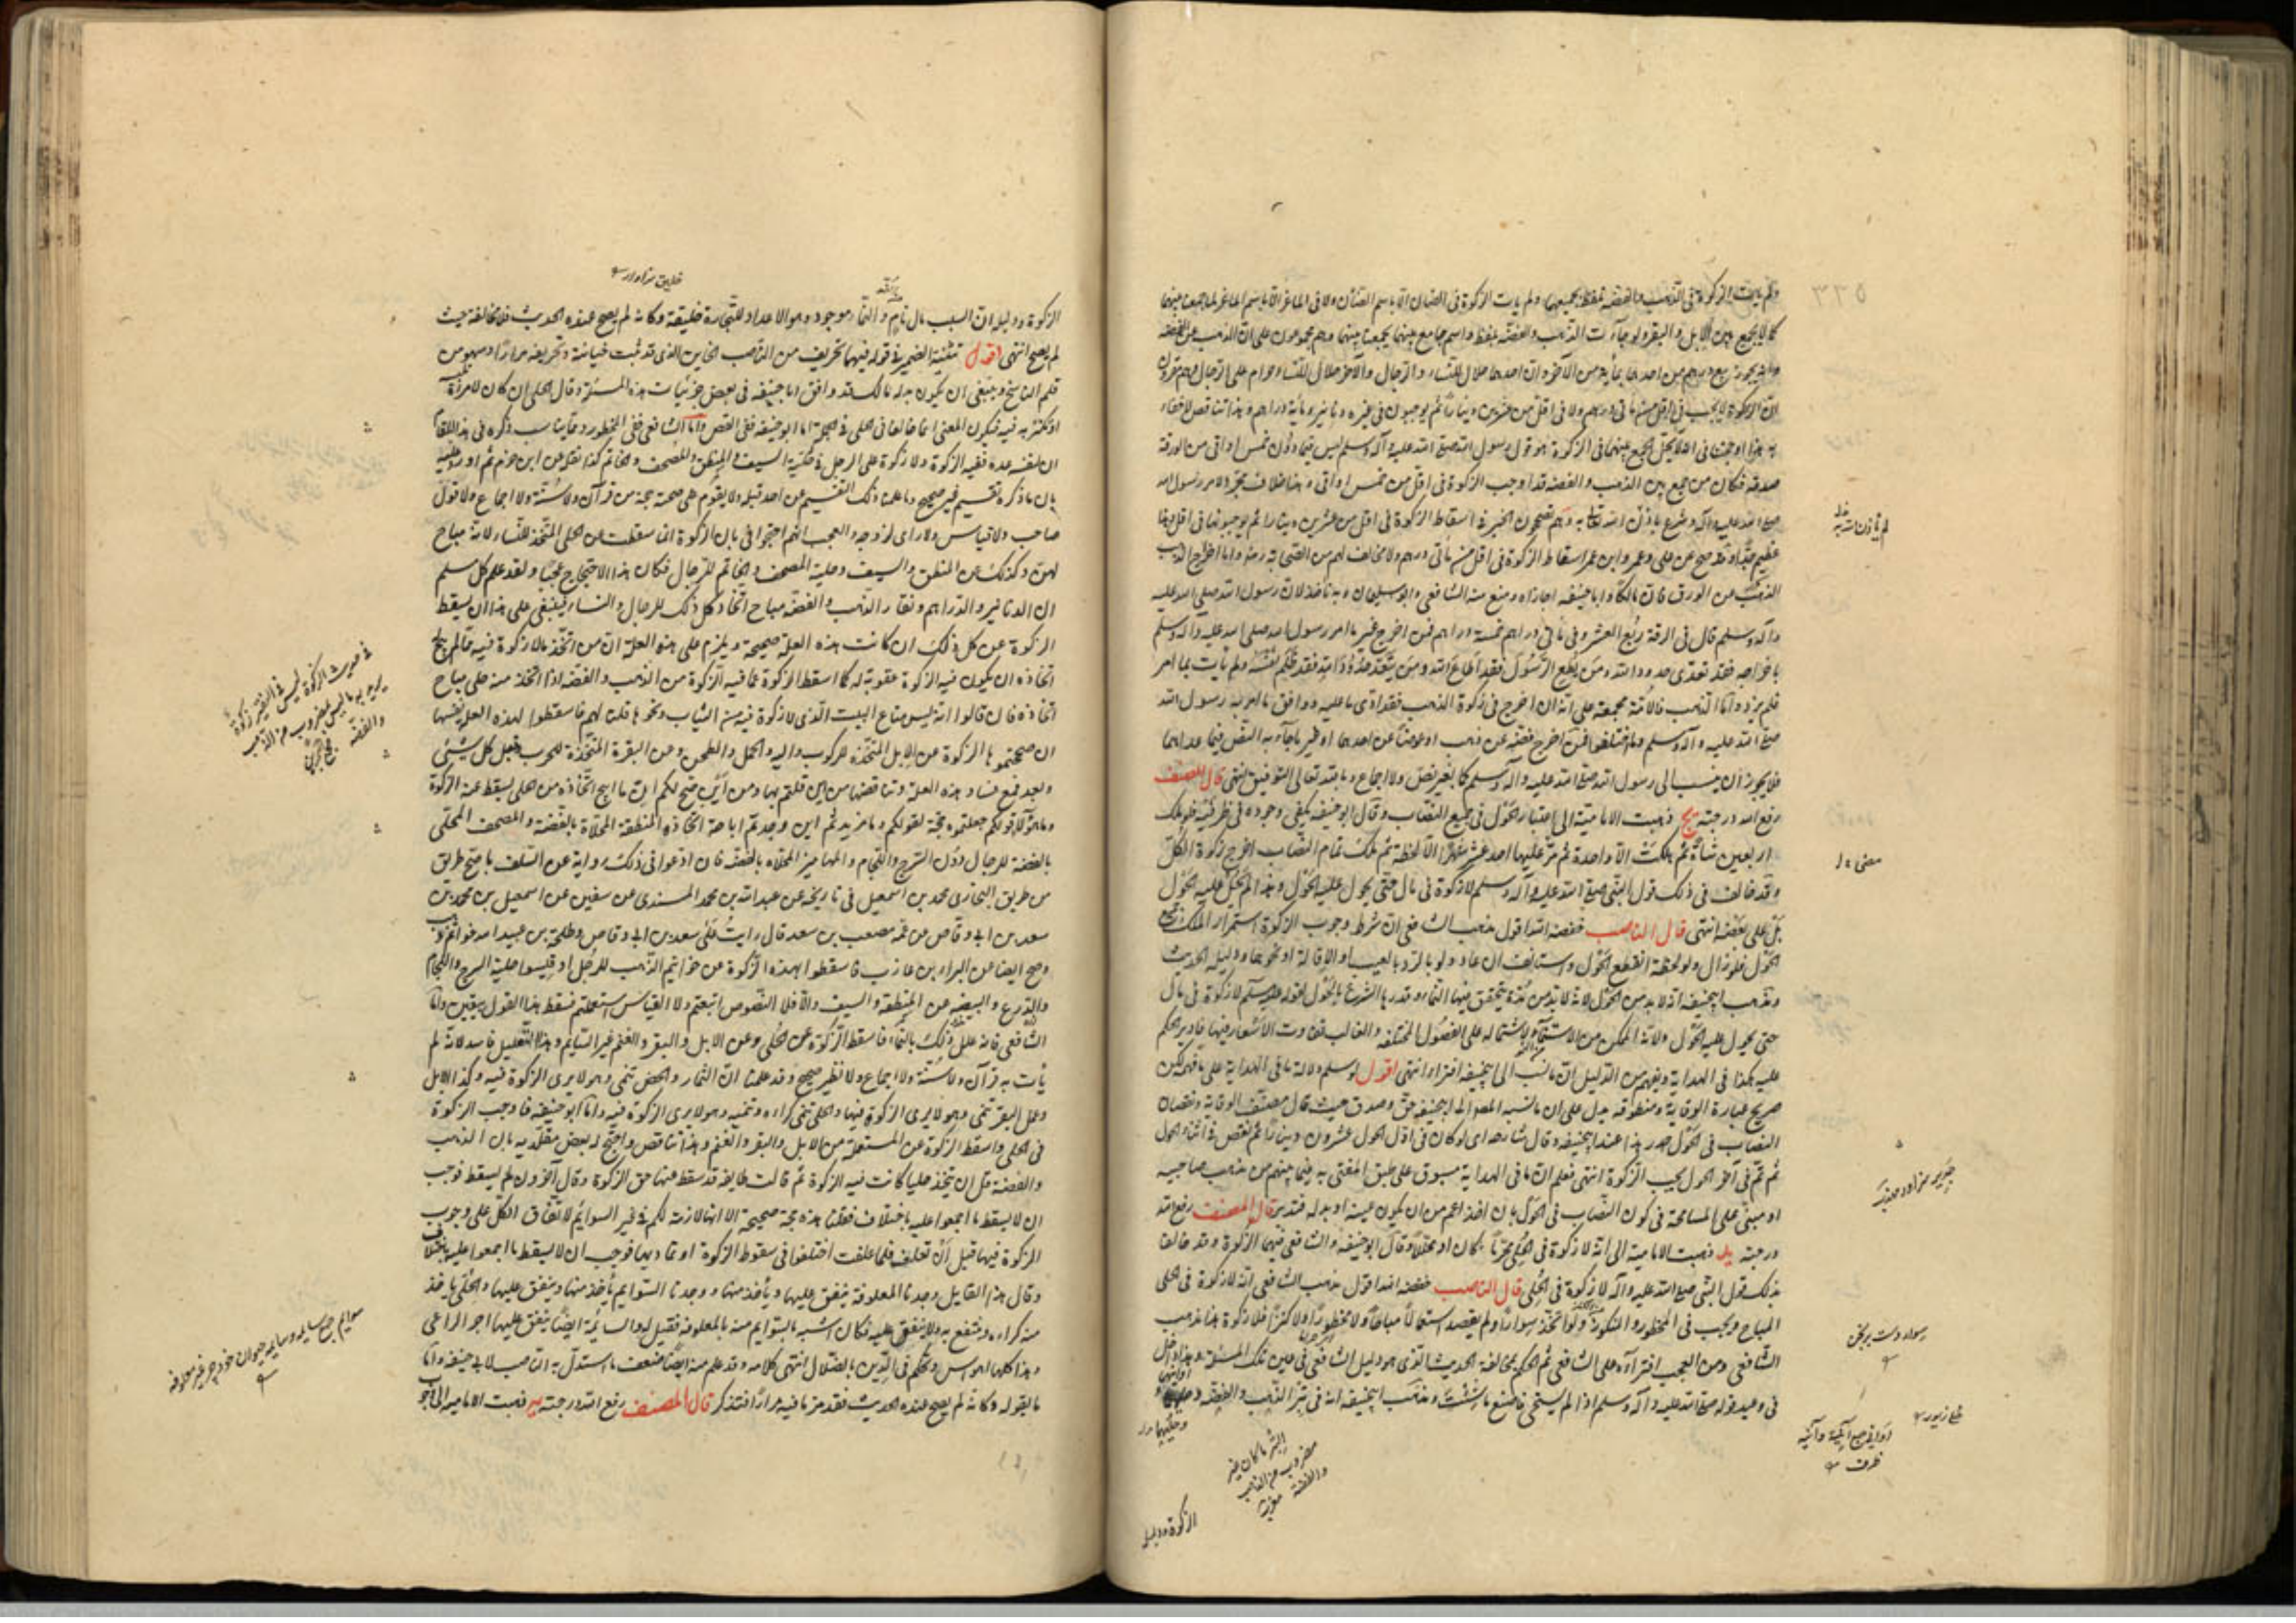 ولم يأت الزكوة في الذهب والفضة بلفظ يجمعهما ولم يات الزكوة في الضان الا باسم الضأن ولا في الماعز الا باسم الماعز
كما لا يجمع بين الابل والبقر ولو جاءت الذهب والفضة بلفظ واسم جامع بينهما لجمعنا بينهما وهم مجمعون على ان الذهب غير الفضة
وانه يجوز بيع درهم من احدهما بمائة من الآخر وان احدهما حلال للنساء والرجال والآخر حلال للنساء وحرام على الرجال وهم مقرون
ان الزكوة لا يجب في اقل من مأتي درهم ولا في اقل من عشرين دينارا ثم يوجبون في عشرة دنانير ومأية دراهم وهذا تناقض لا خفاء
به هذا وحجتنا في انه لا يحل الجمع بينهما في الزكوة هو قول رسول الله صلى الله عليه وآله وسلم ليس فيما دون خمس اواقي من الورق
صدقة فكان من جمع بين الذهب والفضة قد اوجب الزكوة في اقل من خمس اواقي وهذا خلاف مجرد لامر رسول الله
صلى الله عليه وآله وشرع ما لم يأذن الله تعالى به وهم يصححون الخبر في اسقاط الزكوة في اقل من عشرين دينارا ثم يوجبونها في اقل وهذا
عظيم جدا وقد صح عن علي وعمر وابن عمر اسقاط الزكوة في اقل من مأتي درهم ولا مخالف لهم من الصحابة رض واما اخراج الذهب
الذهب عن الورق فان مالكا وابا حنيفة اجازاه ومنع منه الشافعي وابو سليمان وبه ناخذ لان رسول الله صلى الله عليه
وآله وسلم قال في الرقة ربع العشر وفي مأتي دراهم خمسة دراهم فمن اخرج غير ما امر رسول الله صلى الله عليه وآله وسلم
باخراجه فقد تعدى حدود الله ومن يطع الرسول فقد اطاع الله ومن يتعد حدود الله فقد ظلم نفسه ولم يأت بما امر
فلم يزك واما الذهب فالامة مجمعة على انه ان اخرج في زكوة الذهب فقد ادى ما عليه ووافق ما امر به رسول الله
صلى الله عليه وآله وسلم وما اختلفوا فمن اخرج فضة عن ذهب او عوضا عن احدهما او غير ما جاء به النص فيما عداهما
فلا يجوز ان ينسب الى رسول الله صلى الله عليه وآله وسلم حكما بغير نص ولا اجماع وبالله تعالى التوفيق انتهى قال المصنف
رفع الله درجته يج ذهبت الامامية الى اعتبار الحول في جميع النصاب وقال ابو حنيفة يكفي وجوده في طرفيه فلو ملك
اربعين شاة ثم هلكت الا واحدة ثم مر عليها احد عشر شهرا الا لحظة ثم ملك تمام النصاب اخرج زكوة الكل
وقد خالف في ذلك قول النبي صلى الله عليه وآله وسلم لا زكوة في مال حتى يحول عليه الحول وهذا لم يحل عليه الحول
بل على بعضه انتهى قال الناصب خفضه الله اقول مذهب الشافعي ان شرط وجوب الزكوة استمرار الملك في جميع
الحول فلو زال ولو لحظة انقطع الحول واستانف ان عاد ولو بالرد بالعيب او الاقالة او نحوهما ودليله الحديث
ومذهب ابي حنيفة انه لا بد من الحول لانه لا بد من مدة يتحقق فيها النماء وقدرها الشرع بالحول لقوله عليه السلام لا زكوة في مال
حتى يحول عليه الحول ولانه الممكن من الاستنماء لاشتماله على الفصول المختلفة والغالب تفاوت الاسعار فيها فادير الحكم
عليه هكذا في الهداية ويفهم من الدليل ان ما نسب الى ابي حنيفة افتراء انتهى اقول لو سلم دلالة ما في الهداية على ما فهمه لكن
صريح عبارة الوقاية ومنطوقه يدل على ان ما نسبه المصنف الى ابي حنيفة حق وصدق حيث قال مصنف الوقاية ونقصان
النصاب في الحول هدر هذا عند ابي حنيفة وقال شارحه اي لو كان في اول الحول عشرون دينارا ثم نقص في اثناء الحول
ثم تم في آخر الحول يجب الزكوة انتهى فعلم ان ما في الهداية مسوق على طبق المفتى به فيما بينهم من مذهب صاحبيه
او مبني على المسامحة في كون النصاب في الحول بان اخذ اعم من ان يكون عينه او بدله فتدبر قال المصنف رفع الله
درجته يد ذهبت الامامية الى انه لا زكوة في الحلي محرما كان او محللا وقال ابو حنيفة والشافعي فيهما الزكوة وقد خالفا
بذلك قول النبي صلى الله عليه وآله لا زكوة في الحلي قال الناصب خفضه الله اقول مذهب الشافعي انه لا زكوة في الحلي
المباح ويجب في المحظور والمكروه ولو اتخذ سوارا ولم يقصد استعمالا مباحا ولا محظورا ولا كنزا فلا زكوة هذا مذهب
الشافعي ومن العجب افتراؤه على الشافعي ثم الحكم بمخالفة الحديث الذي هو دليل الشافعي في عين تلك المسئلة وهذا دخل
في وعيد قوله صلى الله عليه وآله وسلم اذا لم يستحي فاصنع ما شئت ومذهب ابي حنيفة انه في تبر الذهب والفضة
وحليهما
الزكوة ودليل
لم يأذن الله به
سوار دست برنجن
حلي زيور
اواني جمع آنية وآنية
ظرف
التبر ما كان غير
مضروب من الذهب
والفضة
خليق سزاوار
الزكوة ودليله ان السبب مال نام والنماء موجود وهو الاعداد للتجارة خليقة وكانه لم يصح عنده الحديث فلا مخالفة حيث
لم يصح انتهى اقول تثنية الضمير في قوله فيهما تحريف من الناصب الخاين الذي قد ثبت خيانته وتحريفه مرارا او سهو من
قلم الناسخ وينبغي ان يكون بدله مالك قد وافق ابا حنيفة في بعض جزئيات هذه المسئلة وقال الحلي ان كان لامرأة
او تكتريه فيه فيكون المعنى انما خالفا في الحلي في الجملة اما ابو حنيفة ففي القصر واما الشافعي ففي المحظور ومما يناسب ذكره في هذا المقام
ان لنفسه عدة ففيه الزكوة ولا زكوة على الرجل في حلية السيف والمنطقة والمصحف والخاتم كذا نقل عن ابن حزم ثم اورد عليه
بان ما ذكره تقسيم غير صحيح وما علمنا ذلك التقسيم عن احد قبله ولا يقوم على صحته حجة من قرآن ولا سنة ولا اجماع ولا قول
صاحب ولا قياس ولا راى له وجه والعجب انهم احتجوا في بان الزكوة انما سقطت عن الحلي المتخذ للنساء لانه مباح
لهن وكذلك عن المنطقة والسيف وحلية المصحف والخاتم للرجال فكان هذا الاحتجاج عجبا ولقد علم كل مسلم
ان الدنانير والدراهم ونقار الذهب والفضة مباح اتخاذ كل ذلك للرجال والنساء فينبغي على هذا ان يسقط
الزكوة عن كل ذلك ان كانت هذه العلة صحيحة ويلزم على هذه العلة ان من اتخذ ما لا زكوة فيه مما لم يبح
اتخاذه ان يكون فيه الزكوة عقوبة له كما اسقط الزكوة عما فيه الزكوة من الذهب والفضة اذا اتخذ منه حلي مباح
اتخاذه فان قالوا انه ليس متاع البيت الذي لا زكوة فيه من الثياب ونحوها قلنا لهم فاسقطوا لهذه العلة نفسها
ان صححتموها الزكوة عن الابل المتخذة للركوب والبه والحمل والطحن وعن البقرة المتخذة للحرب وقبل كل شيئ
وبعد فمع فساد هذه العلة وتناقضها من اين قلتم بها ومن اين صح لكم ان ما ابيح اتخاذه من الحلي يسقط عنه الزكوة
وما هو الا قولكم جعلتموه حجة لقولكم وما مزيد ثم اين وجدتم اباحة اتخاذ المنطقة المحلاة بالفضة والمصحف المحلى
بالفضة للرجال دون السرج واللجام والمهاميز المحلاه بالفضة فان ادعوا في ذلك رواية عن السلف با صح طريق
من طريق البخاري محمد بن اسمعيل في تاريخه عن عبد الله بن محمد المسندي عن سفين عن اسمعيل بن محمد بن
سعد بن ابي وقاص عن عمه مصعب بن سعد قال رايت على سعد بن ابي وقاص وطلحة بن عبيد الله خواتم ذهب
وصح ايضا عن البراء بن عازب فاسقطوا لهذه الزكوة عن خواتيم الذهب للرجل او قيسوا حلية السرج واللجام
والدرع والبيضة عن المنطقة والسيف والا فلا النصوص اتبعتم ولا القياس استعملتم فسقط هذا القول بيقين واما
الشافعي فانه علل ذلك بالنماء فاسقط الزكوة عن الحلي وعن الابل والبقر والغنم غير السايم وهذا التعليل فاسد لانه لم
يأت به قرآن ولا سنة ولا اجماع ولا نظر صحيح وقد علمنا ان الثمار والخضر تنمي وهو لا يرى الزكوة فيه وكذا الابل
وعمل البقر تنمي وهو لا يرى الزكوة فيها والحلي تنمي كراءه وتنميه وهو لا يرى الزكوة فيه واما ابو حنيفة فاوجب الزكوة
في الحلي واسقط الزكوة عن المستعملة من الابل والبقر والغنم وهذا تناقض واحتج له بعض مقلديه بان الذهب
والفضة قبل ان يتخذ حليا كانت فيه الزكوة ثم قالت طايفة قد سقط منها حق الزكوة وقال آخرون لم يسقط فوجب
ان لا يسقط ما اجمعوا عليه باختلاف فقلنا هذه حجة صحيحة الا انها لازمة لكم في غير السوايم لاتفاق الكل على وجوب
الزكوة فيها قبل ان تعلف فلما علفت اختلفوا في سقوط الزكوة او تماديها فوجب ان لا يسقط ما اجمعوا عليه باختلاف
وقال هذا القايل وجدنا المعلوفة ينفق عليها ويأخذ منها ووجدنا السوايم يأخذ منها وينفق عليها والحلي ياخذ
منه كراءه وينتفع به ولا ينفق عليه فكان اشبه بالسوايم منه بالمعلوفة فقيل له والسائمة ايضا ينفق عليها اجر الراعي
وهذا كلها هوس وتحكم في الدين بالضلال انتهى كلامه وقد علم منه ايضا ضعف ما استدل به الناصب لابي حنيفة واما
ما يقوله وكانه لم يصح عنده الحديث فقد مر ما فيه مرارا فتذكر قال المصنف رفع الله درجته يه ذهبت الامامية الى
في حديث الزكوة ليس في النقرة زكوة
يريد به ما ليس بمضروب من الذهب
والفضة
سوايم جمع سايمه وسايمه حيوان خود چر غير معلوفه